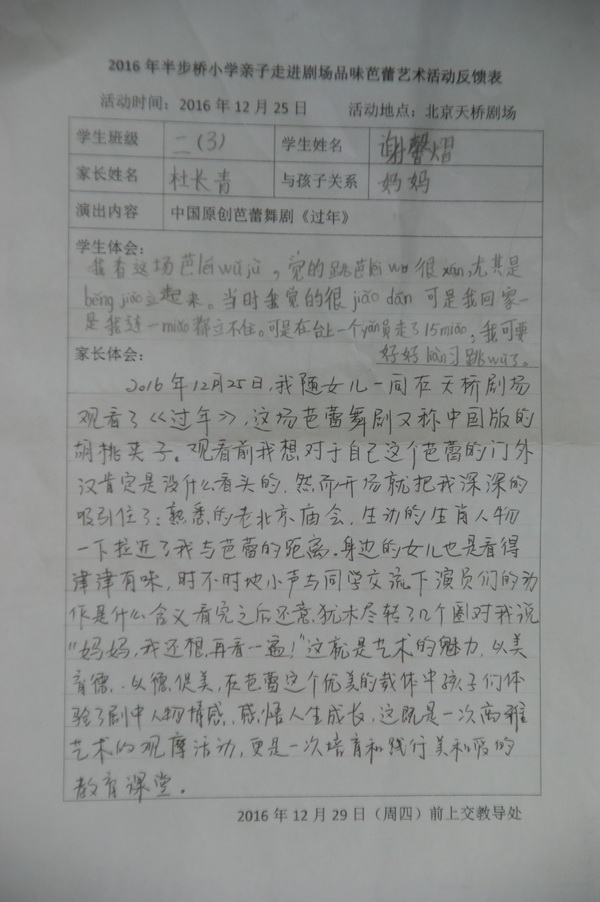 2016年半步桥小学亲子走进剧场品味芭蕾艺术活动反馈表
活动时间：2016年12月25日 活动地点：北京天桥剧场
学生班级 二(3) 学生姓名 谢馨熠
家长姓名 杜长青 与孩子关系 妈妈
演出内容 中国原创芭蕾舞剧《过年》
学生体会：
我看这场芭lěi wǔ jù，觉的跳芭lěi wǔ很xīn，尤其是
bēng jiǎo立起来。当时我觉的很jiǎo dān 可是我回家一
是我连一miǎo都立不住。可是在台上一个yǎn员走了15miǎo，我可要
家长体会： 好好liàn习跳wǔ了。
2016年12月25日，我随女儿一同在天桥剧场
观看了《过年》，这场芭蕾舞剧又称中国版的
胡桃夹子。观看前我想对于自己这个芭蕾的门外
汉肯定是没什么看头的，然而开场就把我深深的
吸引住了：熟悉的老北京庙会，生动的生肖人物
一下拉近了我与芭蕾的距离。身边的女儿也是看得
津津有味，时不时地小声与同学交流下演员们的动
作是什么含义看完之后还意犹未尽转了几个圈对我说
"妈妈，我还想再看一遍！"这就是艺术的魅力，以美
育德，以德促美，在芭蕾这个优美的载体中孩子们体
验了剧中人物情感，感悟人生成长，这既是一次高雅
艺术的观摩活动，更是一次培育和践行美和爱的
教育课堂。
2016年12月29日（周四）前上交教导处